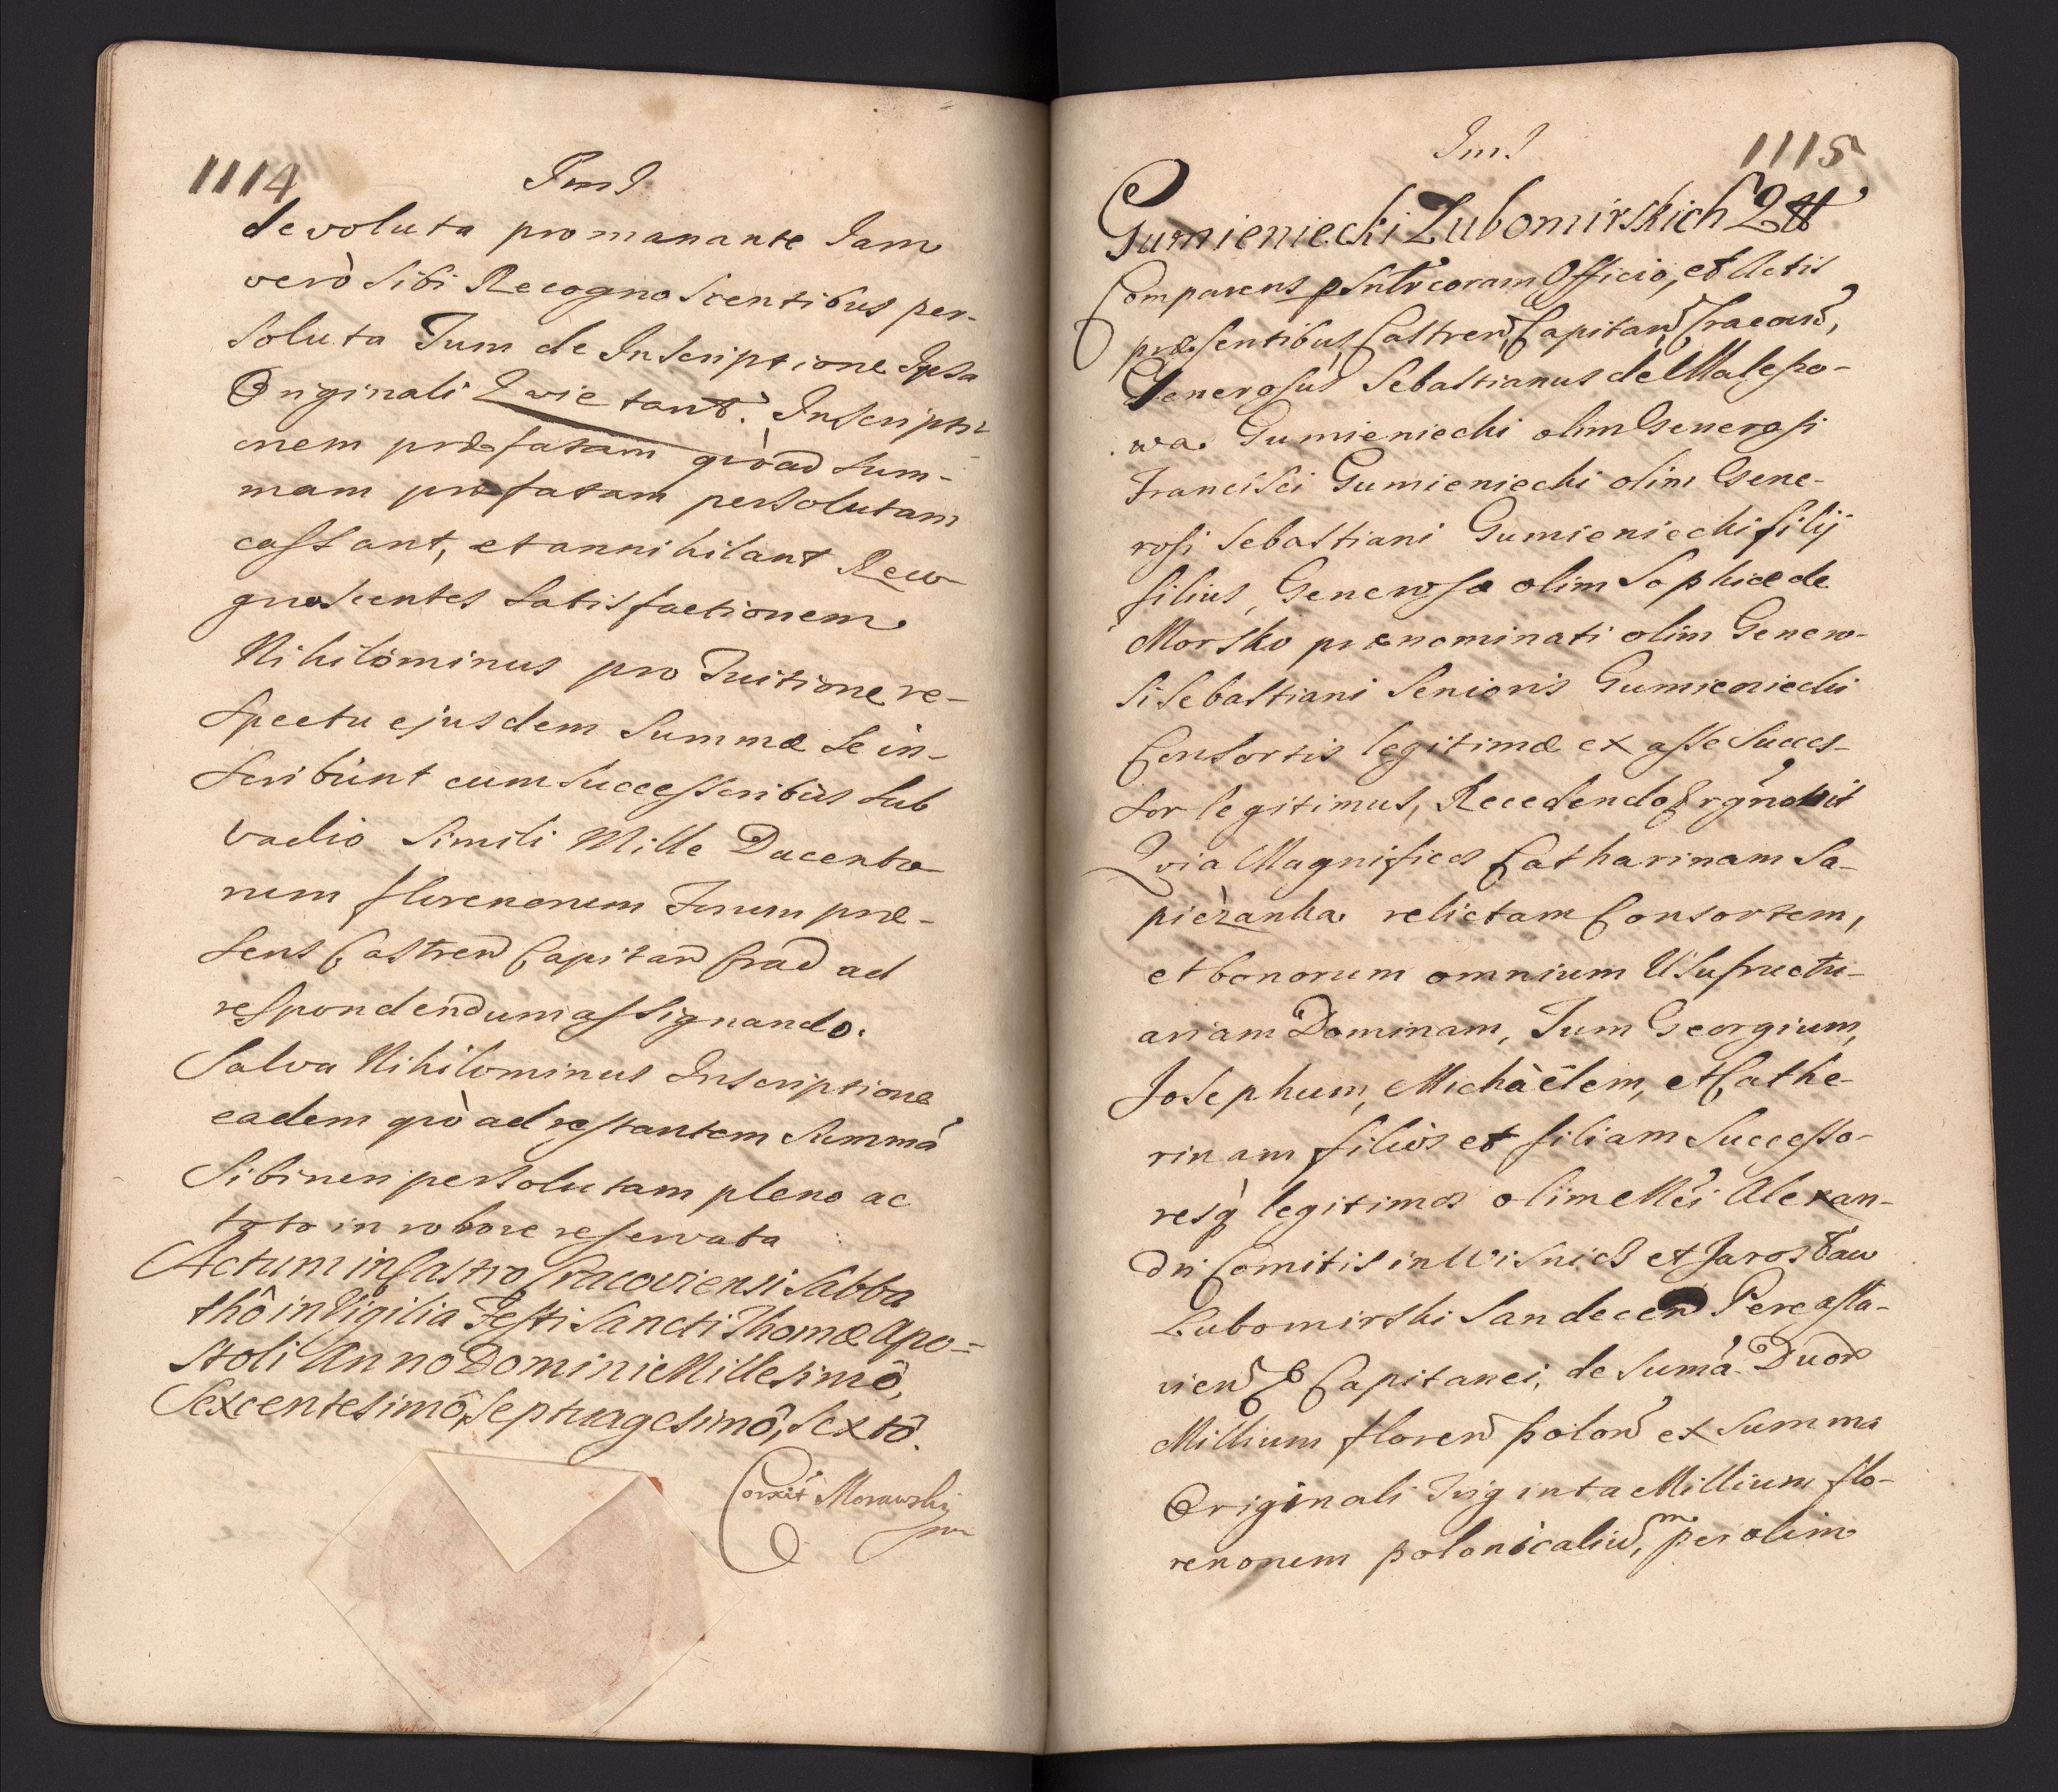 1114
devoluta promanante Jam
verò sibi Recognoscentibus per-
soluta Tum de Inscriptione Ipsa
Originali Qvietant. Inscriptio
onem præfatam qvòad sum-
mam præfatam persolutam
cassant, et annihilant Reco
gnoscentes satisfactionem
Nihilominus pro Tuitione re-
spectu ejusdem Summæ se in-
scribunt cum Successoribus sub
vadio Simili Mille Ducento
rum florenorum Forum præ-
sens Castren Capitan Crac ad
respondendum assignando.
Salva Nihilominus Inscriptione
eadem qvò ad restantem Summã
Sibi non persolutam pleno ac
toto in robore reservata
Actum in Castro Cracoviensi Sabba
thô in Vigilia Festi Sancti Thomæ Apo-
stoli Anno Domini Millesimô,
Sexcentesimô, Septuagesimô, Sextô.
Corxit Morawski
mp
1115
Gumieniecki Lubomirskich Qtt
Comparens psntr coram Officio, et Actis
præsentibus Castren, Capitan, Cracovien,
Generosus Sebastianus de Malepo-
wa Gumieniecki olim Generosi
Francisci Gumieniecki olim Gene-
rosi Sebastiani Gumieniecki filij
filius, Generosæ olim Sophiæ de
Morsko prænominati olim Genero-
si Sebastiani Senioris Gumieniecki
Consortis legitimæ ex asse Succes-
sor legitimus, Recedendo & rgnovit
Qvia Magnificos Catharinam Sa-
pieżanka relictam Consortem,
et bonorum omnium Usufructu-
ariam Dominam, Tum Georgium,
Josephum, Michàëlem, et Cathe-
rinam filios et filiam Successo-
resq legitimos olim Mci Alexan-
dri Comitis in Wisnicz et Jarosław
Lubomirski Sandecen Pereasla-
vien & Capitanei, de Sumã Duor
Millium floren polon ex Summa
Originali Triginta Millium flo-
renorum polonicaliu,m per olim